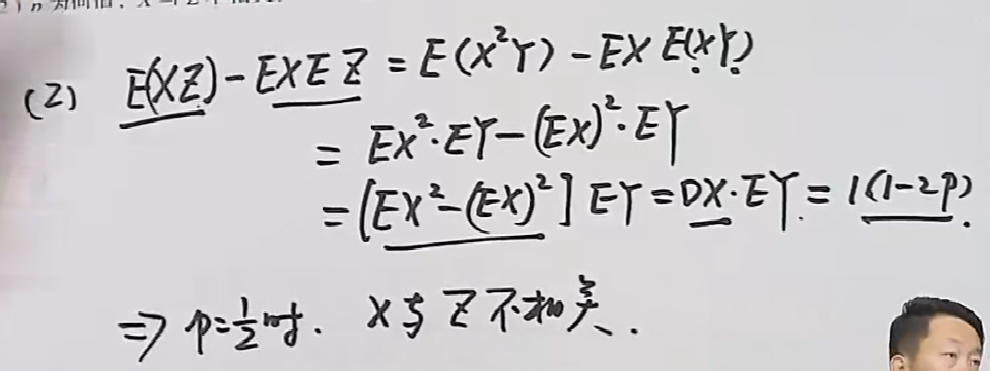 (2) E(XZ)-EXEZ=E(X²Y)-EXE(XY)
=EX²·EY-(EX)²·EY
=[EX²-(EX)²]EY=DX·EY=1(1-2p).
⇒ p=1/2时. X与Z不相关.